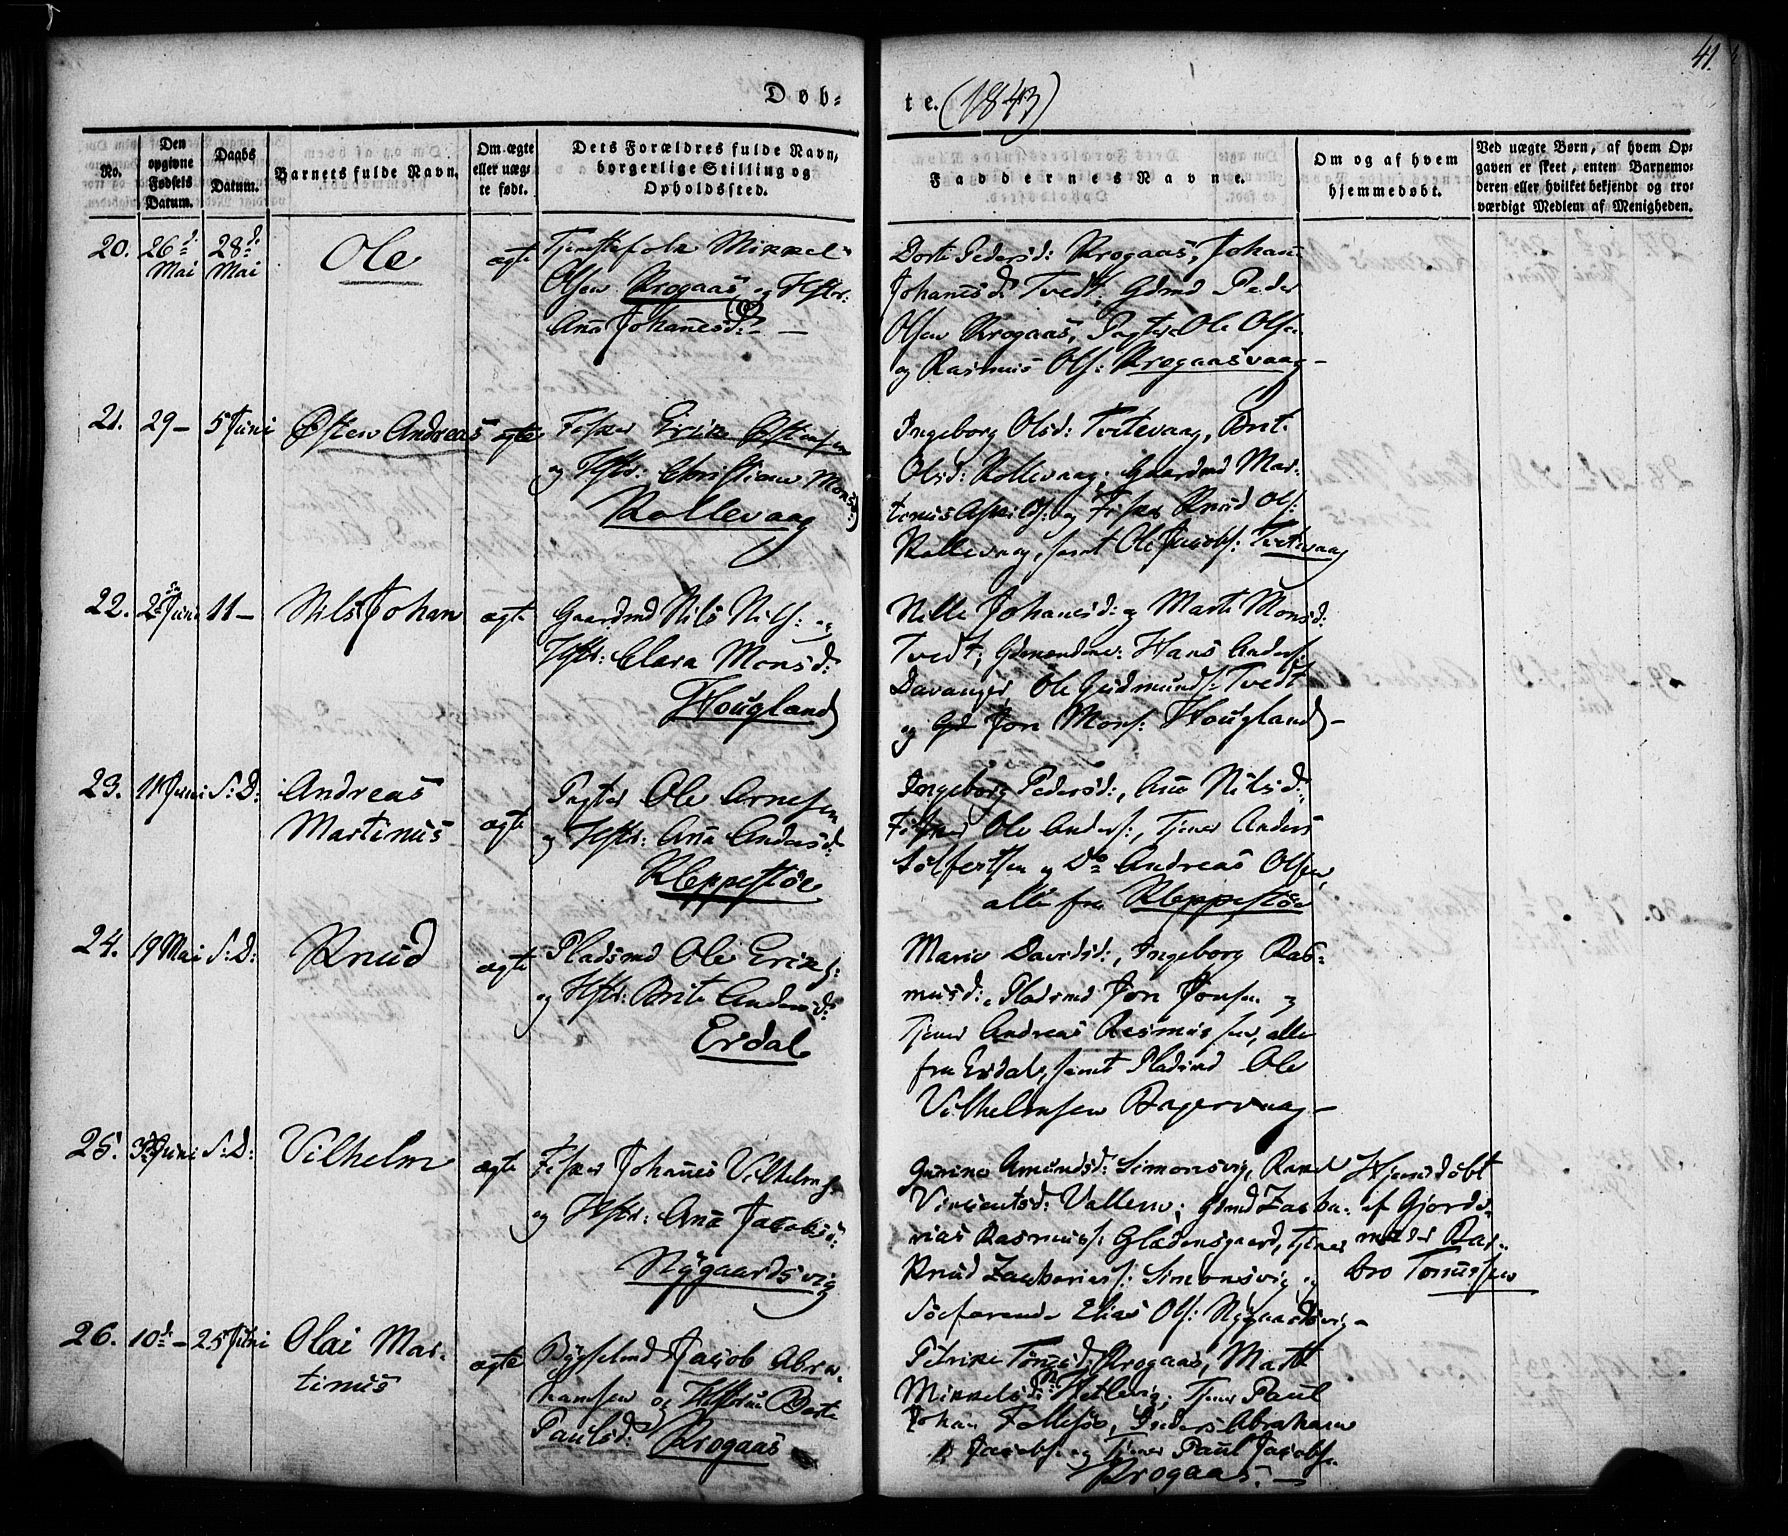 41.
Døb-
te. (1843)
No.
Den
opgivne
Fødsels
Datum.
Daabs
Datum.
Barnets fulde Navn.
Om ægte
eller uæg-
te født.
Dets Forældres fulde Navn,
borgerlige Stilling og
Opholdssted.
Faddernes Navne.
Om og af hvem
hjemmedøbt.
Ved uægte Børn, af hvem Op-
gaven er skeet, enten Barnemo-
deren eller hvilket bekjendt og tro-
værdigt Medlem af Menigheden.
20.
26d
Mai
28d
Mai
Ole
ægte
Tjenstefolk Mikkel
Olsen Krogaas og Hstr:
Ana Johanesd:
Dorte Pedersd: Krogaas, Johana
Johanesd: Tvedt; Gdmd Peder
Olsen Krogaas, Pagter Ole Olsen
og Rasmus Ols: Krogaasvaag –
21.
29 –
5 Juni
Østen Andreas
ægte
Fisker Erik Østensen
og Hstr: Christiane Monsd:
Kollevaag
Ingeborg Olsd: Tveitevaag, Brit
Olsd: Kollevaag; Gaardmd Mar-
tinus Askilds: og Fisker Knud Ols:
Kollevaag, samt Ole Jacobs: Tveitevaag
22.
2d Juni
11 –
Nils Johan
ægte
Gaardmd Nils Nils: og
Hstr: Clara Monsd:
Hougland
Nille Johanesd: og Marte Monsd:
Tvedt; Gdmændene: Hans Anders:
Davanger, Ole Gudmunds: Tvedt
og Gd Jon Mons: Hougland –
23.
11 Juni
S: D:
Andreas
Martinus
ægte
Pagter Ole Arnesen
og Hstr: Ana Andersd:
Kleppestøe
Ingeborg Pedersd:, Ana Nilsd:,
Fisker Ole Anders:, Tjener Anders
Sølfestsen og Do Andreas Olsen,
alle fra Kleppestøe
24.
19 Mai
S: D:
Knud
ægte
Pladsmd Ole Eriks:
og Hstr: Brite Andersd:
Erdal
Marie Davidsd:, Ingeborg Ras-
musd:, Pladsmd Jon Jonsen og
Tjener Andreas Rasmussen, alle
fra Erdal, samt Pladsmd Ole
Vilhelmsen Bagervaag –
25.
3d Juni
S: D:
Vilhelm
ægte
Fisker Johanes Vilhelms:
og Hstr: Ana Jacobsd:
Nygaardsvig
Gurine Amundsd: Simonsvig, Rakel
Vincentsd: Vallem; Gdmd Zacha-
rias Rasmuss: Gladensgaard, Tjener
Knud Zacharias: Simonsvig og
Søefarende Elias Ols: Nygaardsvig –
Hjemdøbt
af Gjorde-
moder Bar-
bro Tonussen
26.
10d –
25 Juni
Olai Mar-
tinus
ægte
Bygselmd Jacob Abra-
hamsen og Hstru Berte
Paulsd: Krogaas
Petrine Tønesd: Krogaas, Marte
Mikkelsd: Hetlevig; Tjener Paul
Johan Follesøe, Abraham
Jacobs: og Tjener Paul Jacobs:
Krogaas. –